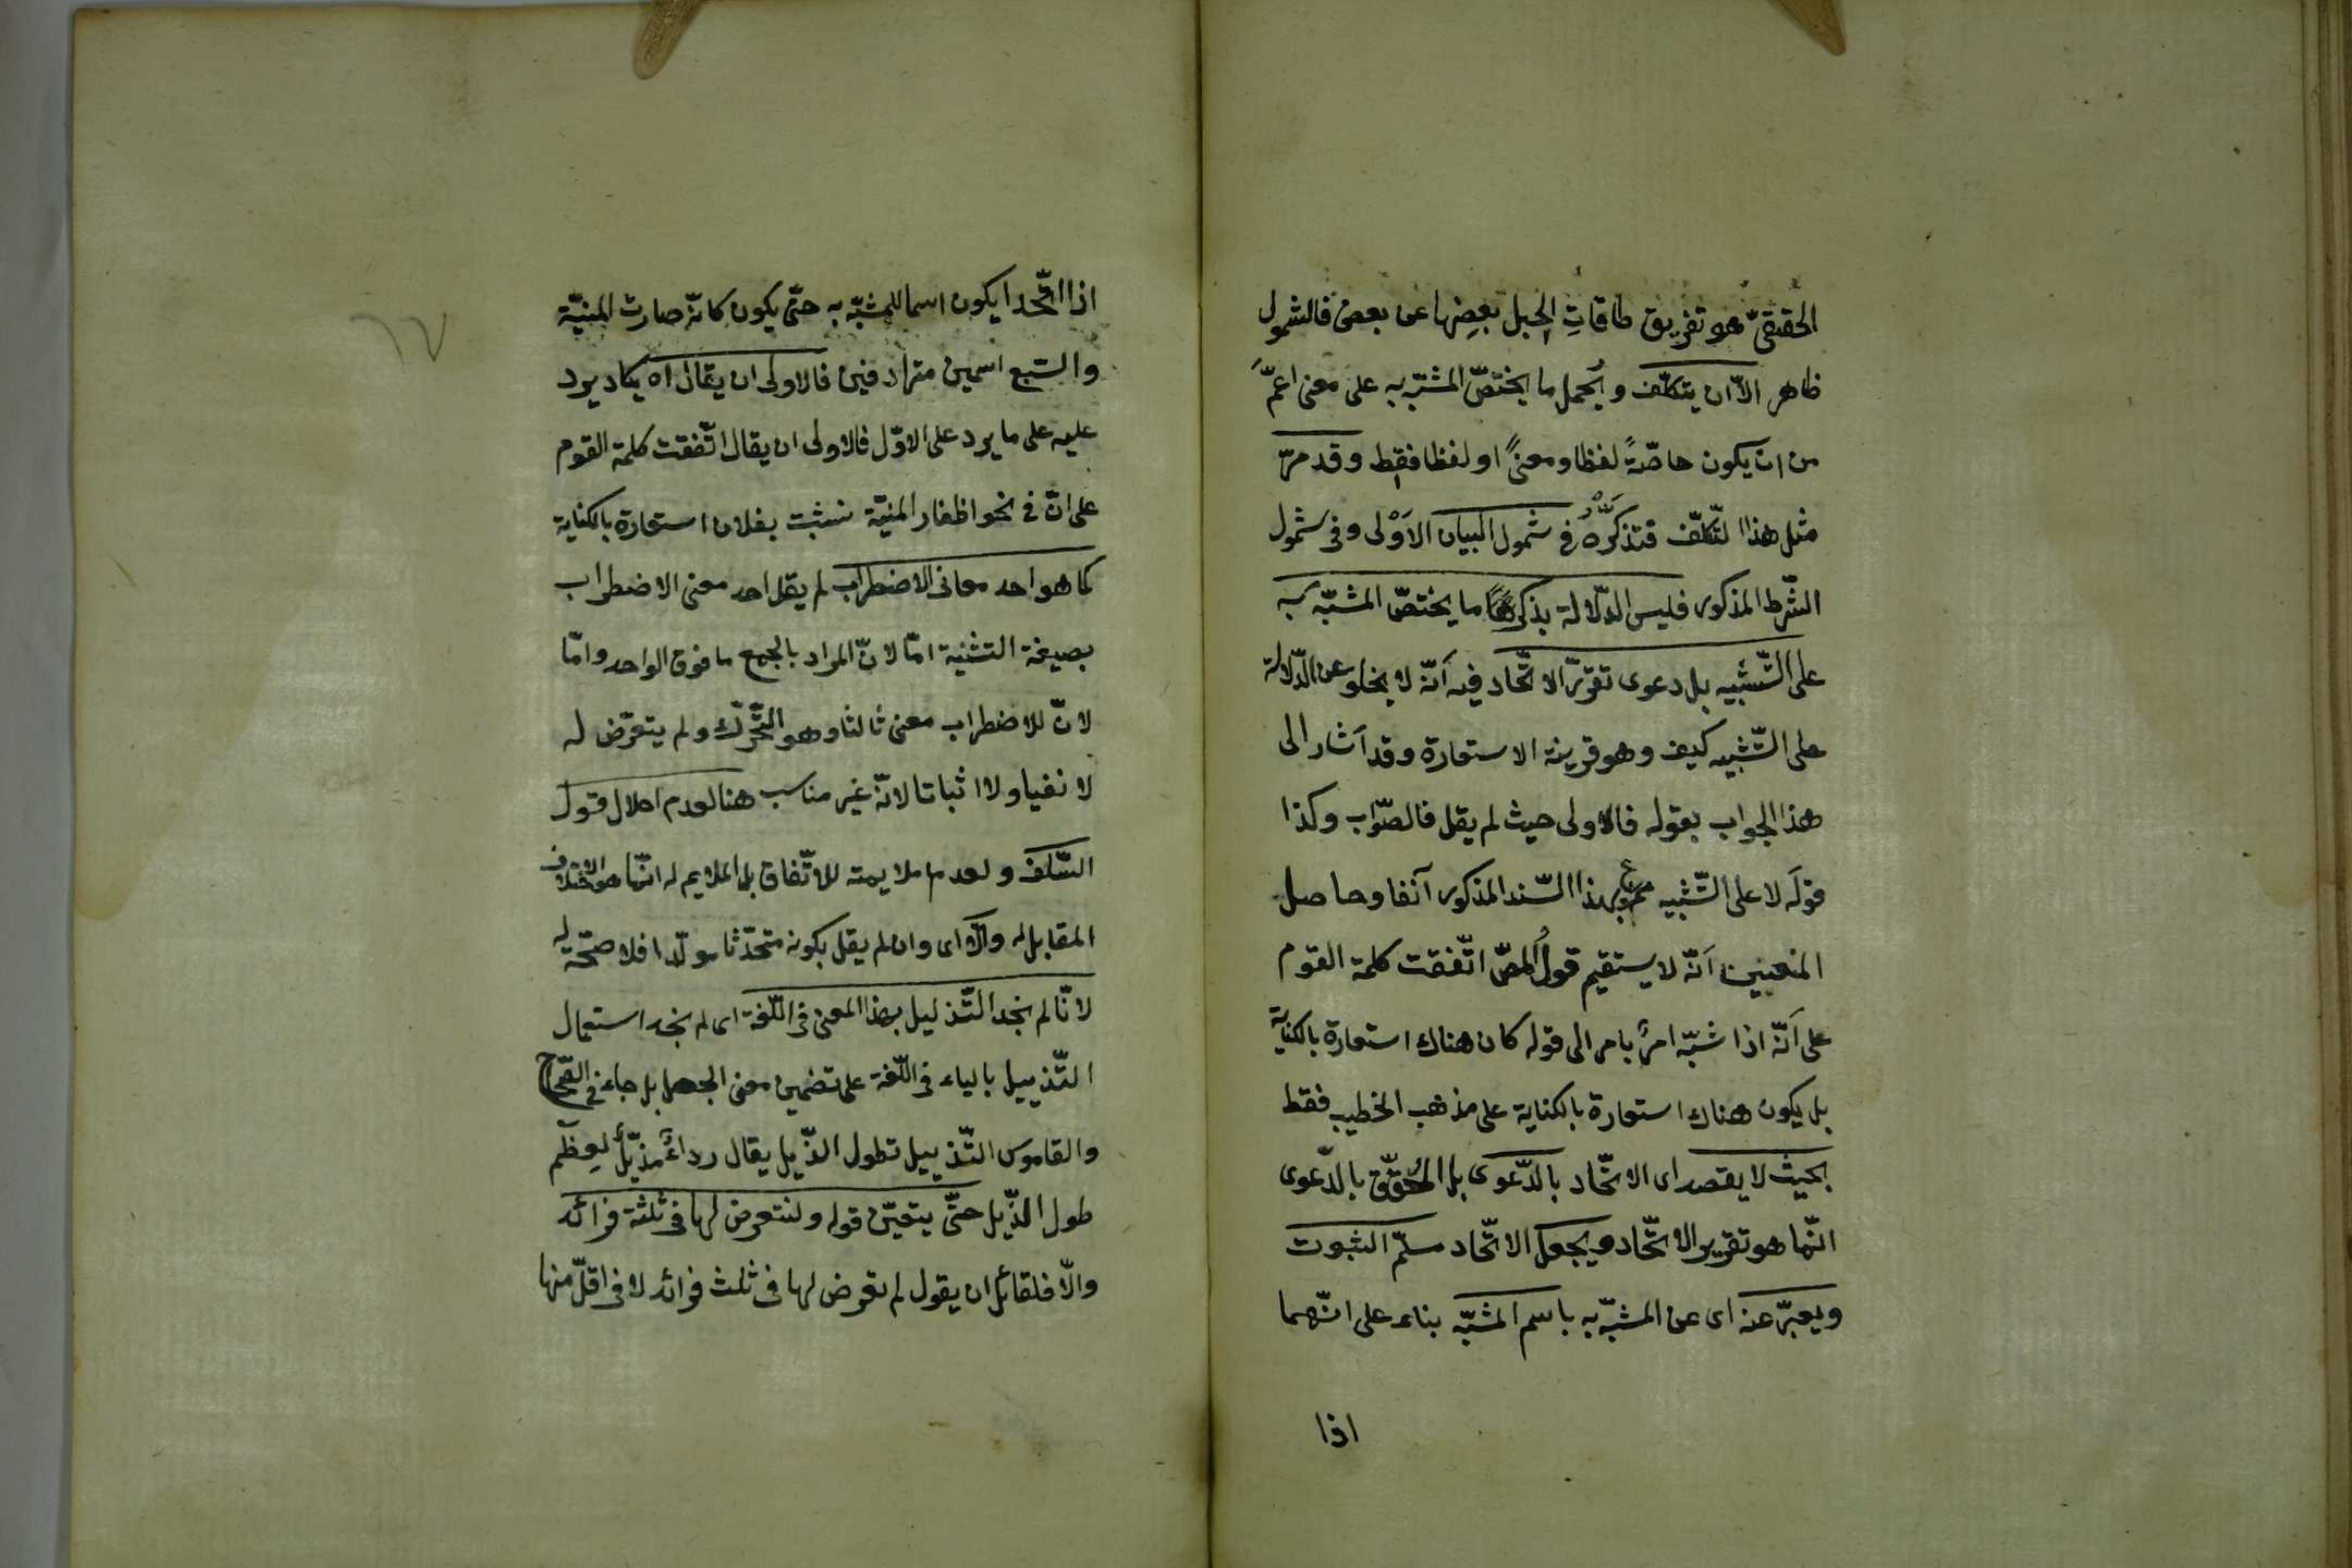 الحقيقىّ هو تفريق طاقاتِ الحبل بعضِها عن بعض فالشمول
ظاهر الاّ ان يتكلّف ويُحمل ما يختصّ المشبّه به على معنى اعمَّ
من ان يكون خاصّةً لفظا ومعنىً او لفظا فقط وقد مرّ
مثل هذا التّكلّف فتذكّره فى شمول البيان الاَوْلى وفى شمول
الشّرط المذكور فليس الدّلالة بذكر ما يختصّ المشبّه به
على التّشبيه بل دعوى تقرّر الاتّحاد فيه اَنّه لا يخلو عن الدّلالة
على التّشبيه كيف وهو قرينة الاستعارة وقد اَشار الى
هذا الجواب بقوله فالاولى حيث لم يقل فالصّواب وكذا
قولَه لا على التّشبيه ممنوع بهذا السّند المذكور آنفا وحاصل
المنعين اَنّه لا يستقيم قولُ المصّ اتّفقت كلمة القوم
على اَنّه اذا شبّه امرٌ بامر الى قوله كان هناك استعارة بالكناية
بل يكون هناك استعارة بالكناية على مذهب الخطيب فقط
بحيث لا يقصد اى الاتّحاد بالدّعوى بل المُحقّق بالدّعوى
انّما هو تقرير الاتّحاد ويجعل الاتّحاد مسلّم الثبوت
ويعبّر عنه اى عن المشبّه به باسم المشبّه بناء على انّهما
اذا
٦٧
اذا اتّحدا يكون اسما للمشبّه به حتّى يكون كانّه صارت المنيّة
والسّبع اسمين مترادفين فالاولى ان يقال اه يكاد يرد
عليه على ما يرد على الاوّل فالاولى ان يقال اتّفقت كلمة القوم
على انّ فى نحو اظفار المنيّة نشبت بفلان استعارة بالكناية
كما هو احد معانى الاضطراب لم يقل احد معنى الاضطراب
بصيغة التثنية امّا لانّ المراد بالجمع ما فوق الواحد وامّا
لانّ للاضطراب معنى ثالثا وهو التّحرّك ولم يتعرّض له
لا نفيا ولا اثباتا لانّه غير مناسب هنا لعدم اخلال قول
السّلف ولعدم ملايمته للاتّفاق بل الملايم له انّما هو الاختلاف
المقابل له والاّ اى وان لم يقل بكونه متحدّثا مولّدا فلا صحّة له
لانّا لم نجد التّذليل بهذا المعنى فى اللّغة اى لم نجد استعمال
التّذييل بالياء فى اللّغة على تضمين معنى الجعل بل جاء فى الصّحاح
والقاموس التّذييل تطول الذّيل يقال رداءٌ مذيّلٌ لعظم
طول الذّيل حتّى يتعيّن قوله ولنتعرض لها فى ثلثة فرائد
والاّ فلقائل ان يقول لم تعرض لها فى ثلث فرائد لا فى اقلّ منها